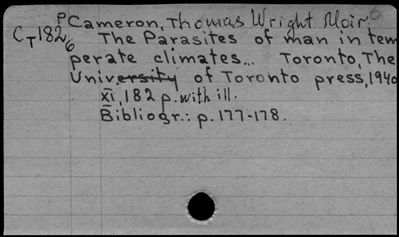 P Cameron, Thomas Wright Moir 6
CT182 6 The Parasites of man in tem
perate climates... Toronto, The
University of Toronto press, 1940
XI, 182 p. with ill.
Bibliogr.: p. 177-178.